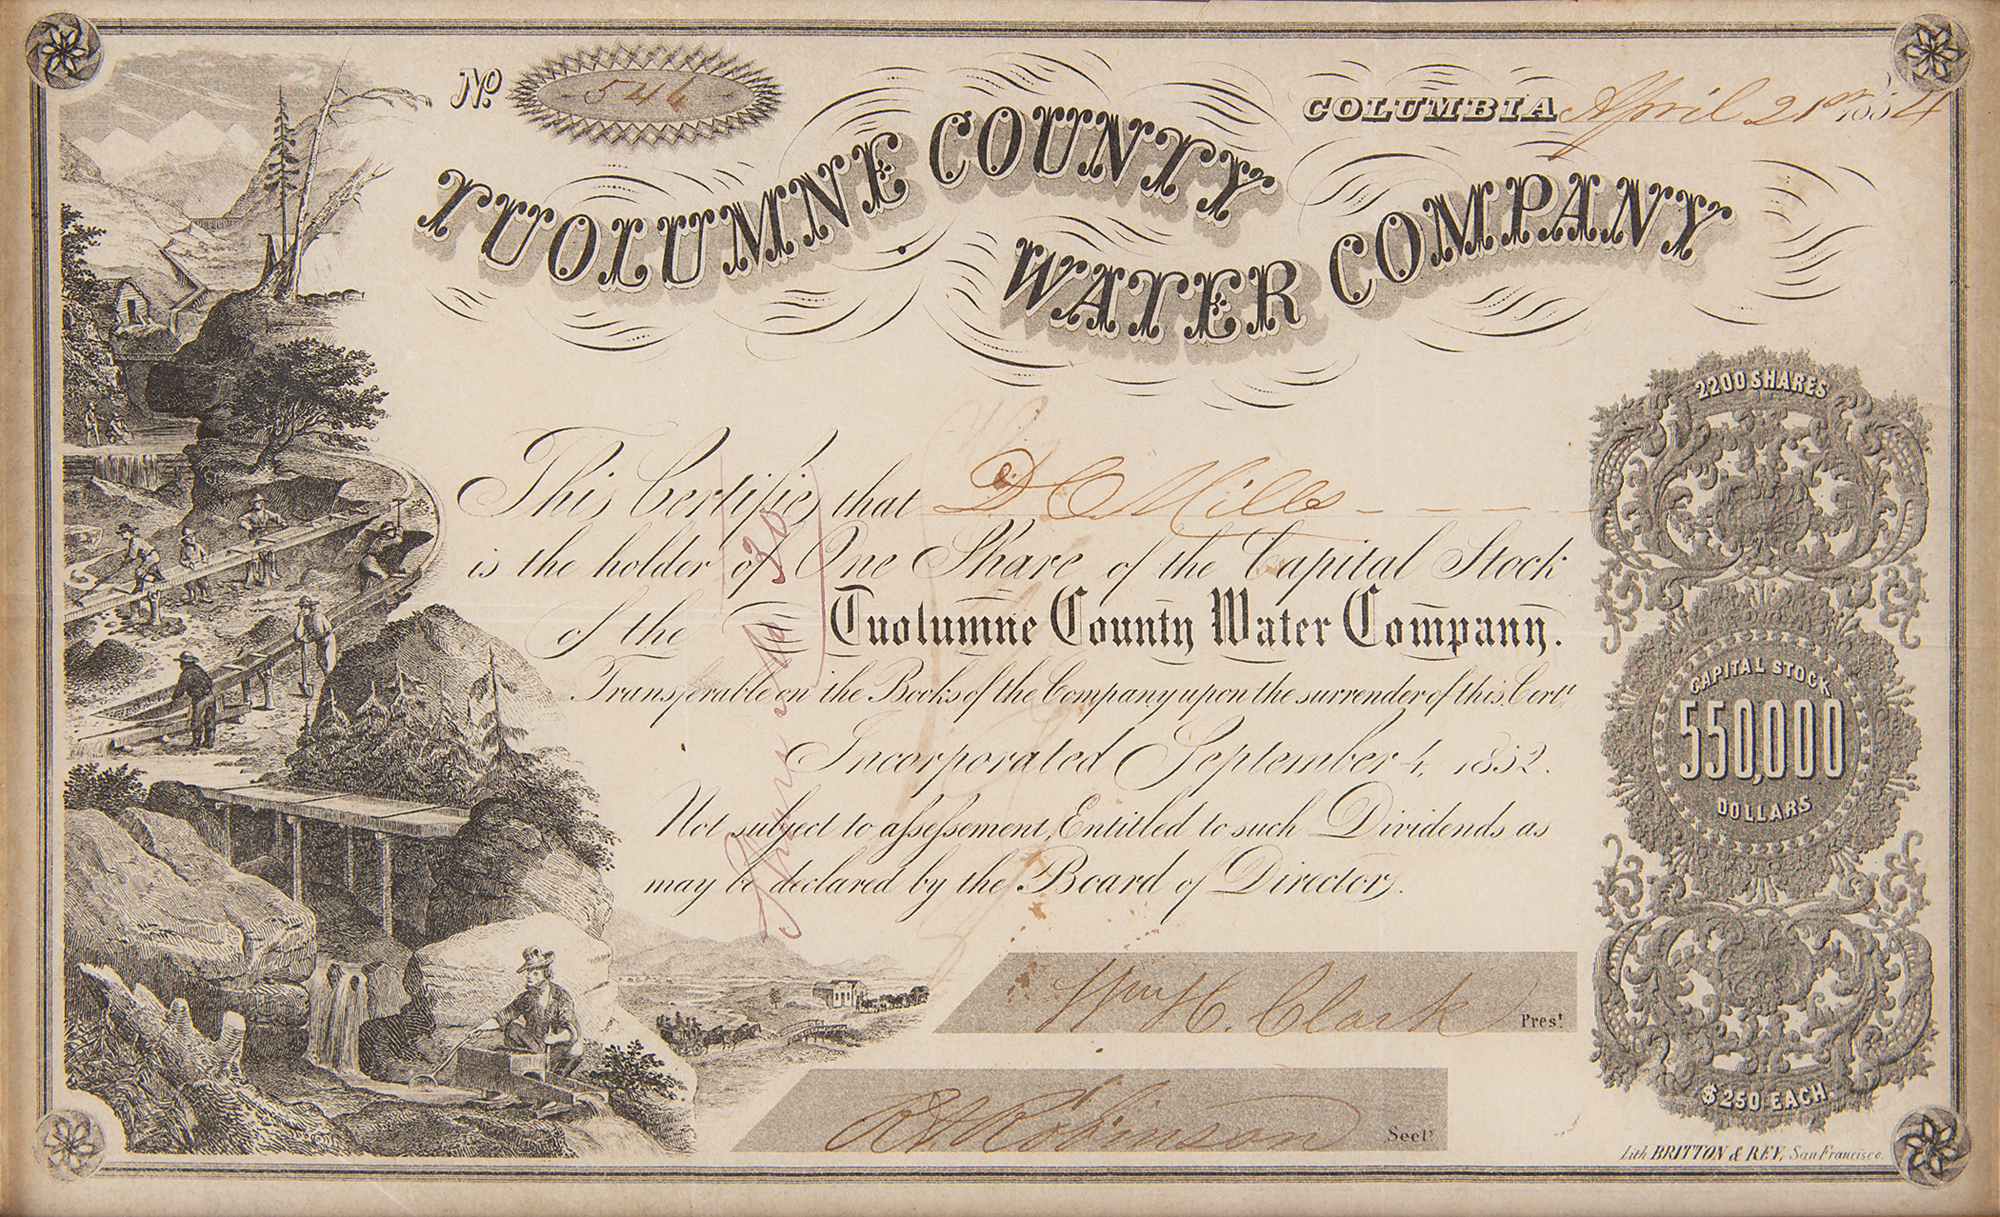 No. 546
COLUMBIA April 21st 1854
TUOLUMNE COUNTY
WATER COMPANY
This Certifies that D O Mills
is the holder of One Share of the Capital Stock
of the Tuolumne County Water Company.
Transferable on the Books of the Company upon the surrender of this Certt
Incorporated September 4, 1852.
Not subject to assessment, Entitled to such Dividends as
may be declared by the Board of Directors.
Wm H. Clark Prest
Robinson Secty
2200 SHARES
CAPITAL STOCK
550,000
DOLLARS
$250 EACH
Share No 30
Lith. BRITTON & REY, San Francisco.